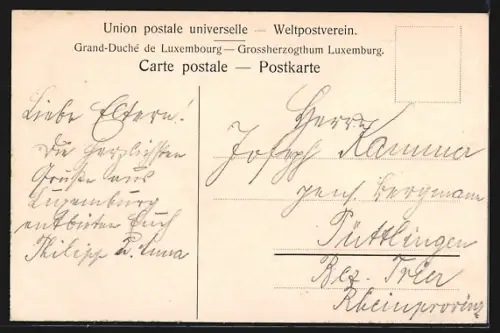 Union postale universelle — Weltpostverein.
Grand-Duché de Luxembourg — Grossherzogthum Luxemburg.
Carte postale — Postkarte
Liebe Eltern!
Die herzlichsten
Grüße aus
Luxemburg
entbieten Euch
Philipp u. Anna
Herrn
Joseph Rammer
pens. Bergmann
Püttlingen
Bez. Trier
Rheinprovinz